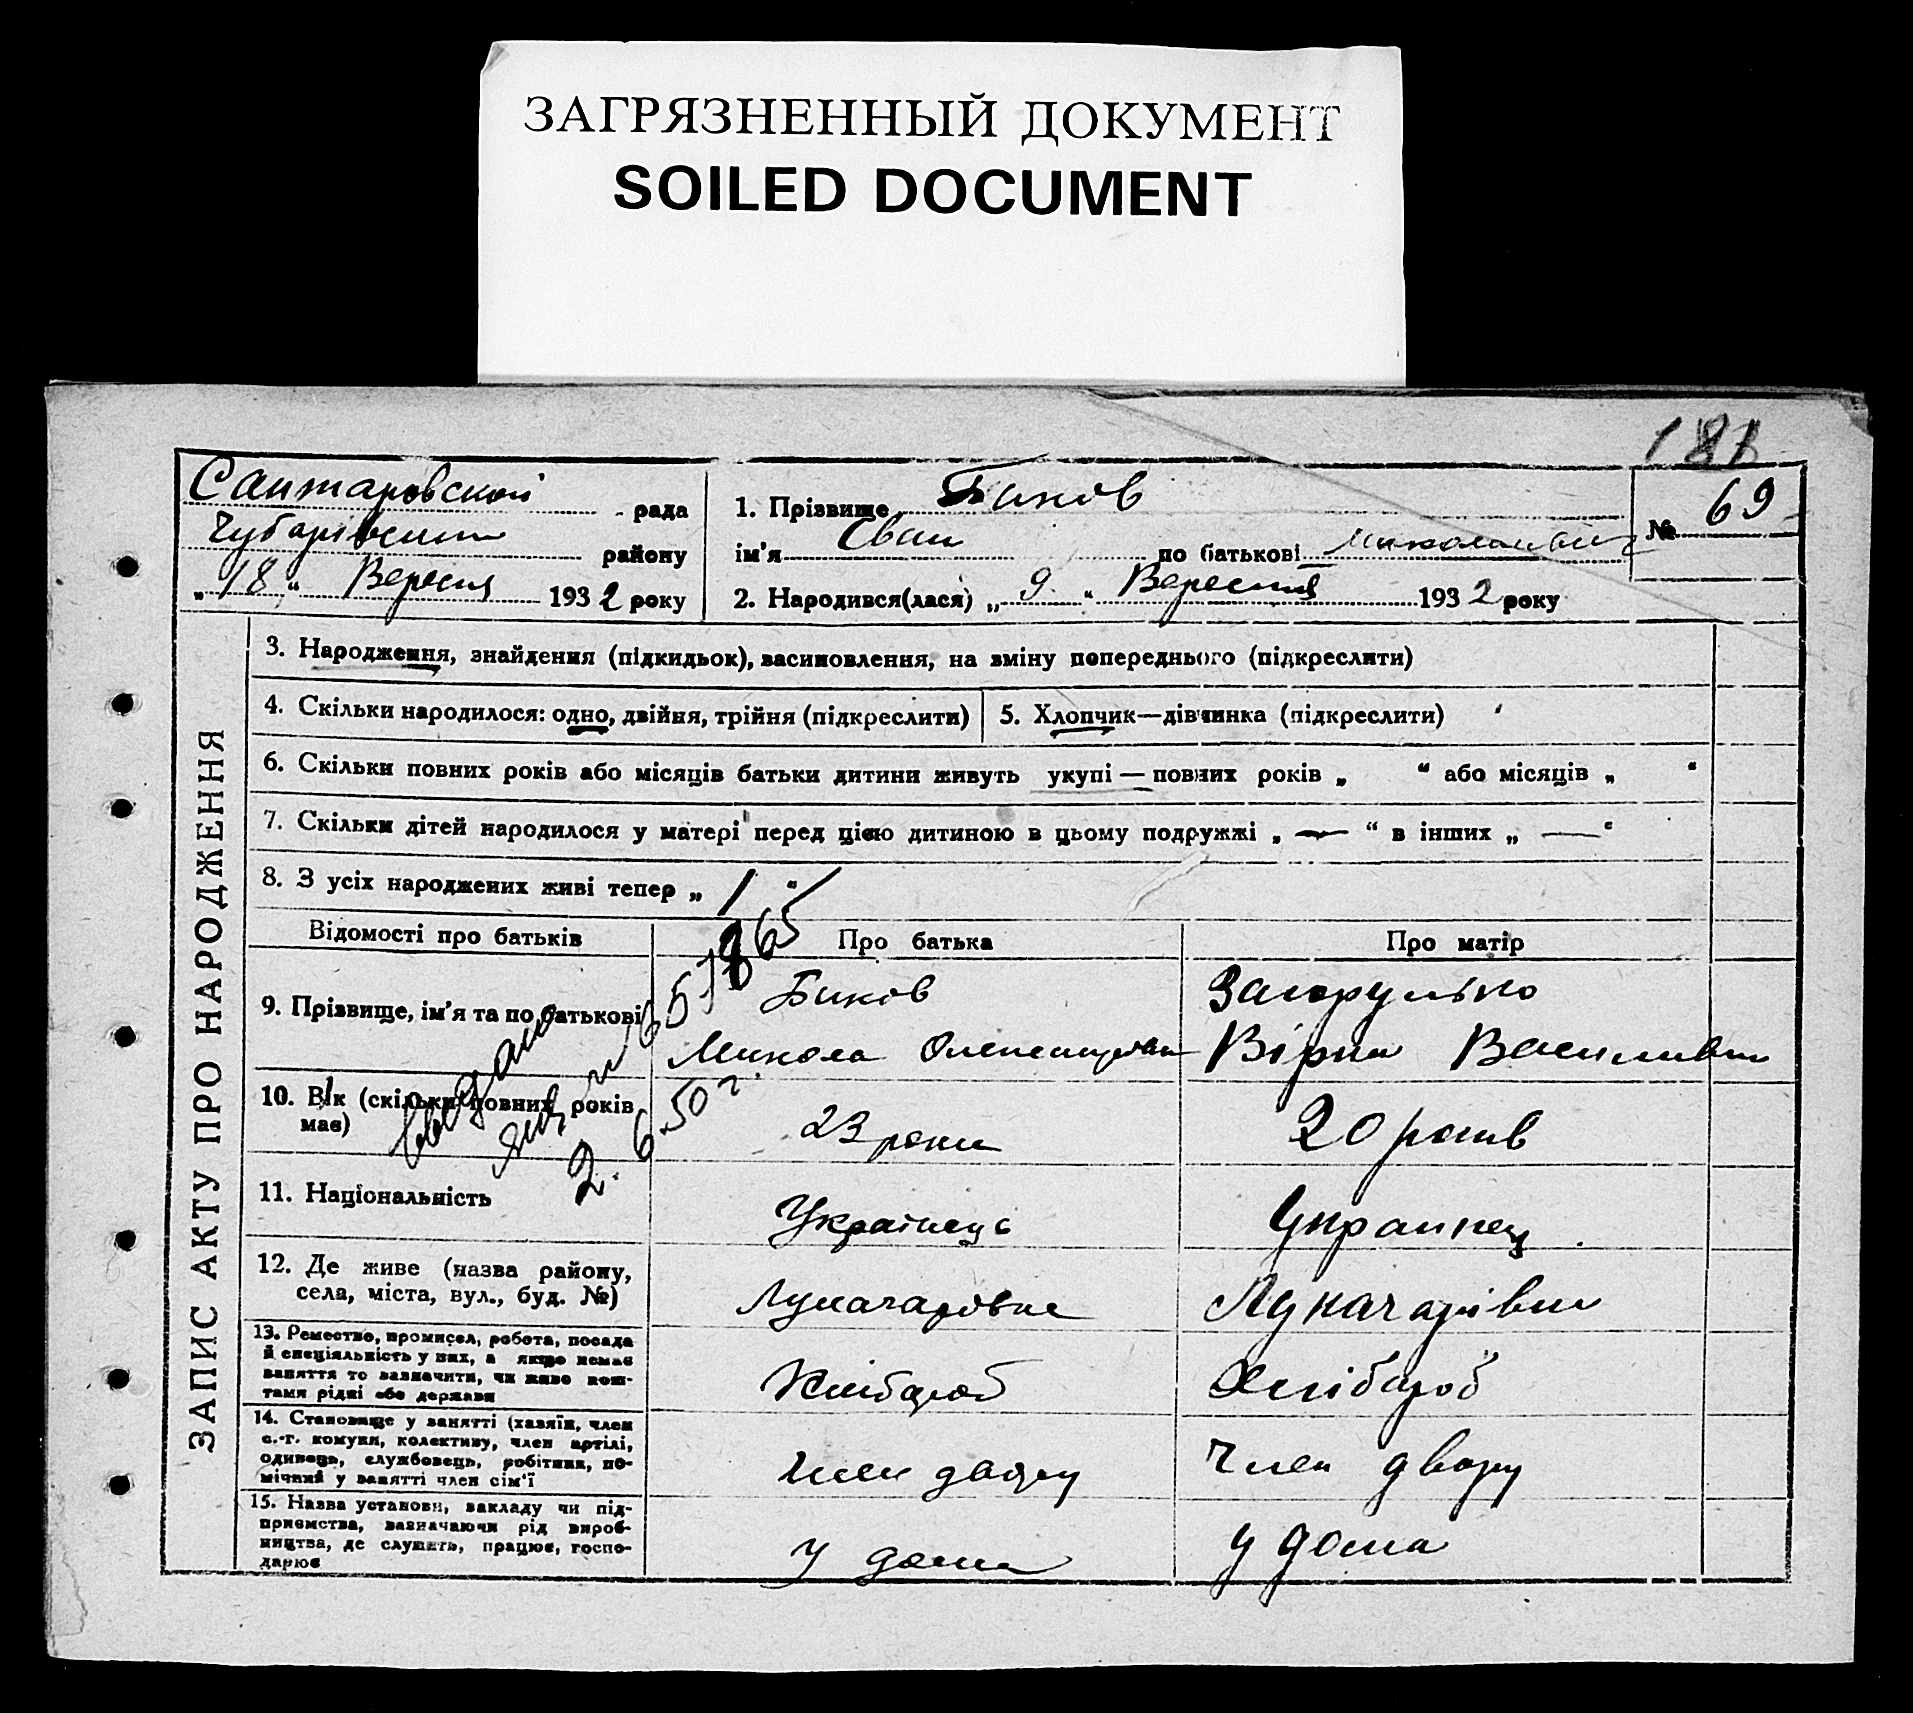 ЗАГРЯЗНЕННЫЙ ДОКУМЕНТ
SOILED DOCUMENT
181
Сантаровской рада
Чубарівськ району
„18“ Вересня 1932 року
1. Прізвище Биков
ім'я Іван по батькові Миколаєвич
2. Народився(лася) „9“ Вересня 1932 року
№ 69
ЗАПИС АКТУ ПРО НАРОДЖЕННЯ
3. Народження, знайдення (підкидьок), васиновлення, на зміну попереднього (підкреслити)
4. Скільки народилося: одно, двійня, трійня (підкреслити)
5. Хлопчик—дівчинка (підкреслити)
6. Скільки повних років або місяців батьки дитини живуть укупі — повних років „ “ або місяців „ “
7. Скільки дітей народилося у матері перед цією дитиною в цьому подружжі „ — “ в інших „ — “
8. З усіх народжених живі тепер „ 1 “
Відомості про батьків
Про батька
Про матір
9. Прізвище, ім'я та по батькові
Биков
Микола Олександрович
Загорулько
Віра Василівна
10. Вік (скільки повних років має)
23 роки
20 років
2.6.50 г.
11. Національність
Українець
Українец
12. Де живе (назва району,
села, міста, вул., буд. №)
Луначарівка
Луначарівка
13. Ремество, промисел, робота, посада
й спеціяльність у них, а якщо немає
заняття то зазначити, чи живе кош-
тами рідні або держави
Хлібороб
Хлібороб
14. Становище у занятті (хазяїн, член
с.-г. комуни, колективу, член артілі,
одинець, службовець, робітник, по-
мічний у занятті член сім'ї
Член двору
Член двору
15. Назва установи, закладу чи під-
приємства, зазначаючи рід вироб-
ництва, де служить, працює, госпо-
дарює
У дома
У дома